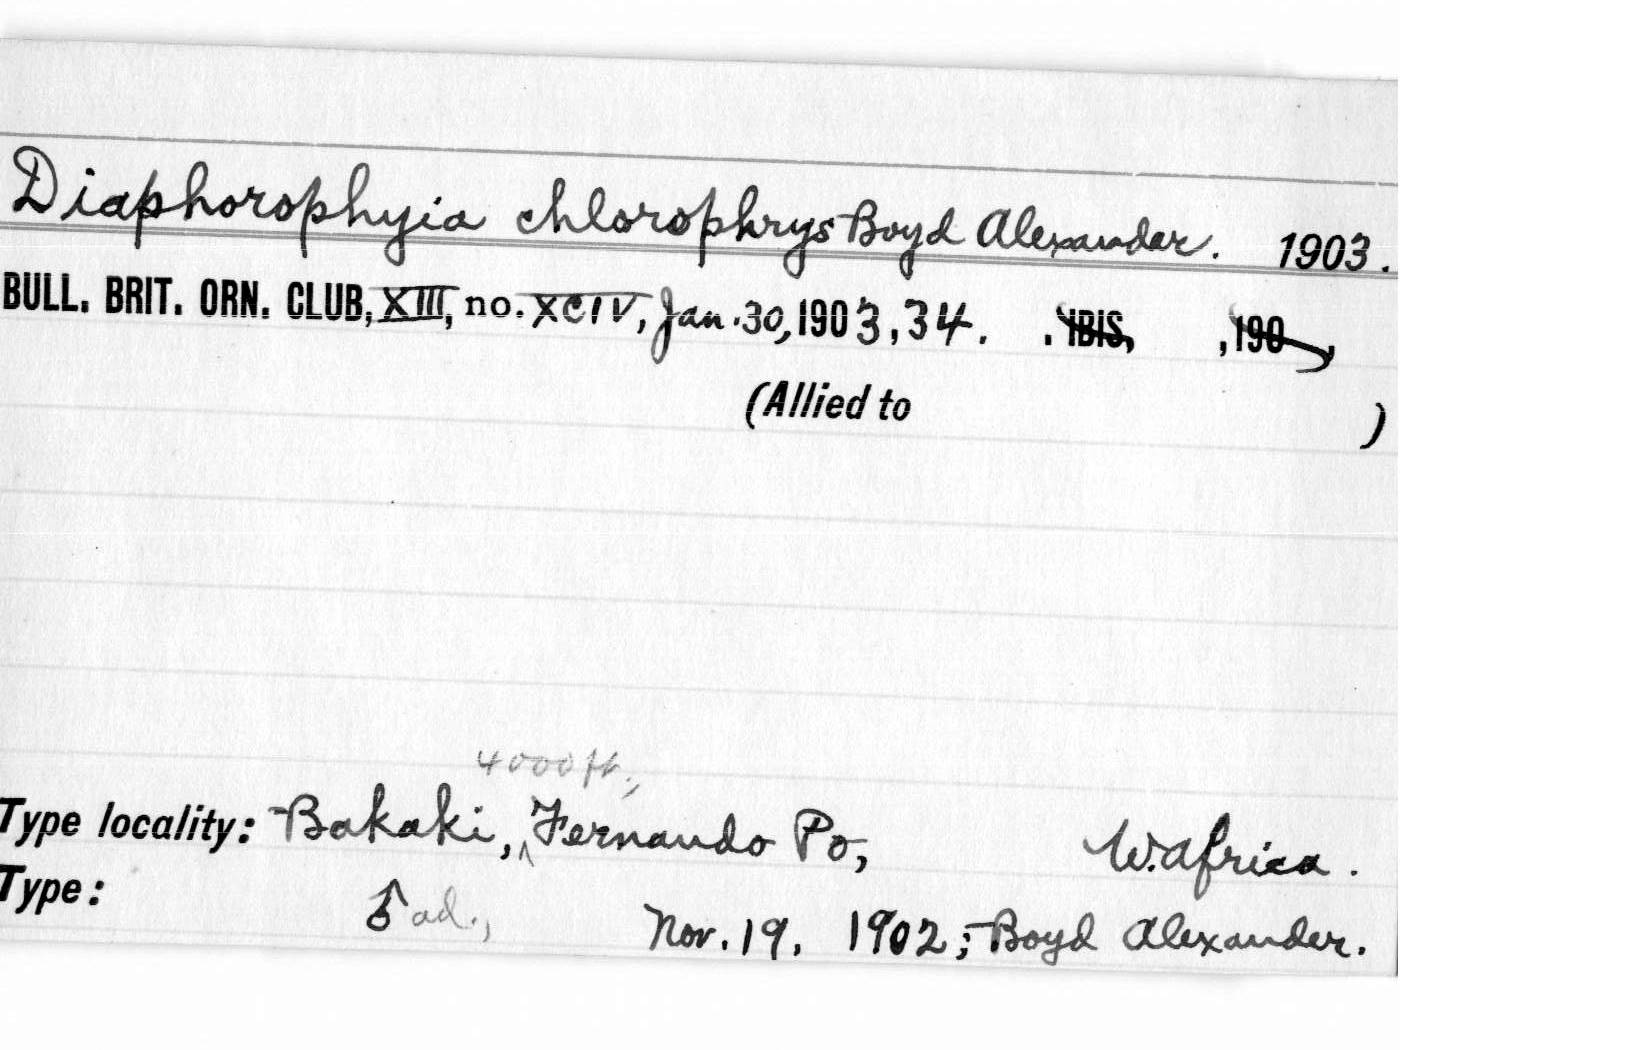 Diaphorophyia chlorophrys Boyd Alexander. 1903.
BULL. BRIT. ORN. CLUB, XIII, no. XCIV, Jan. 30, 1903, 34. . IBIS, , 190 ,
(Allied to )
4000 ft.,
Type locality: Bakaki, ^ Fernando Po, W. Africa.
Type: ♂ ad., Nov. 19, 1902; Boyd Alexander.